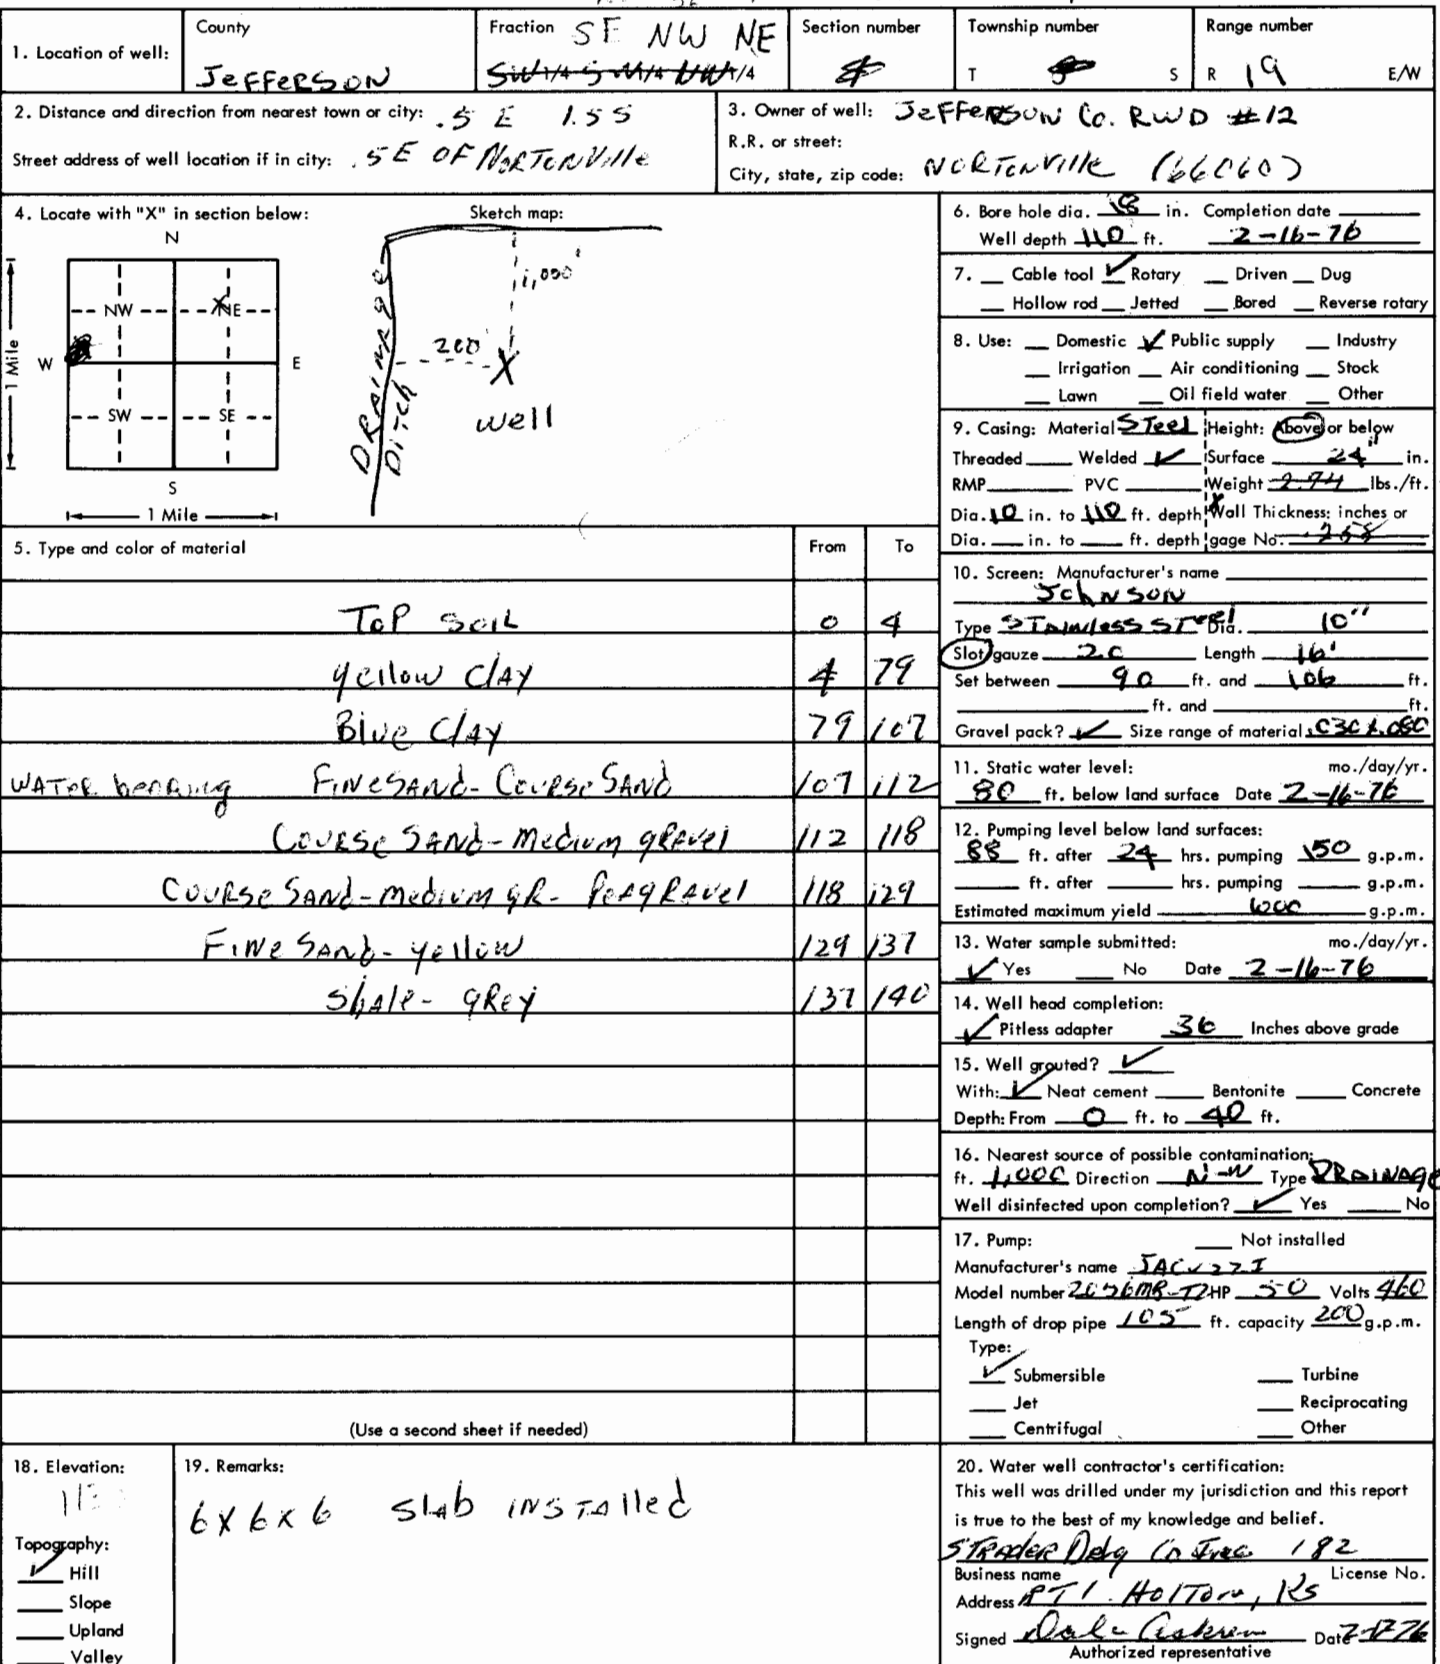 1. Location of well:
County
JeFFeRSON
Fraction SE NW NE
1/4 1/4 1/4
Section number
Township number
T S
Range number
R 19 E/W
2. Distance and direction from nearest town or city: .5 E 1.5 S
Street address of well location if in city: .5E OF NORTONVIlle
3. Owner of well: JeFFeRSON Co. RWD #12
R.R. or street:
City, state, zip code: NORTONVIlle (66060)
4. Locate with "X" in section below:
N
NW NE
W E
SW SE
S
1 Mile
1 Mile
X
Sketch map:
1,000'
200'
X
well
DRAINAGE
Ditch
5. Type and color of material From To
TOP SOIL 0 4
yellow ClAY 4 79
Blue ClAY 79 107
WATER beARing FINE SAND - COURSE SAND 107 112
COURSE SAND - medium gRAVel 112 118
COURSE SAND - medium gR - PeAgRAVel 118 129
FINE SAND - yellow 129 137
ShAle - gRey 137 140
(Use a second sheet if needed)
6. Bore hole dia. 18 in. Completion date
Well depth 110 ft. 2-16-76
7. Cable tool ✓ Rotary Driven Dug
Hollow rod Jetted Bored Reverse rotary
8. Use: Domestic ✓ Public supply Industry
Irrigation Air conditioning Stock
Lawn Oil field water Other
9. Casing: Material STeel Height: Above or below
Threaded Welded ✓ Surface 24" in.
RMP PVC Weight lbs./ft.
Dia. 10 in. to 110 ft. depth Wall Thickness: inches or
Dia. in. to ft. depth gage No.
10. Screen: Manufacturer's name
JohNSON
Type STAINless STeel Dia. 10"
Slot/gauze 20 Length 16'
Set between 90 ft. and 106 ft.
ft. and ft.
Gravel pack? ✓ Size range of material .030 X .050
11. Static water level: mo./day/yr.
80 ft. below land surface Date 2-16-76
12. Pumping level below land surfaces:
88 ft. after 24 hrs. pumping 150 g.p.m.
ft. after hrs. pumping g.p.m.
Estimated maximum yield g.p.m.
13. Water sample submitted: mo./day/yr.
✓ Yes No Date 2-16-76
14. Well head completion:
✓ Pitless adapter 36 Inches above grade
15. Well grouted? ✓
With: ✓ Neat cement Bentonite Concrete
Depth: From 0 ft. to 40 ft.
16. Nearest source of possible contamination:
ft. 1,000 Direction N-W Type DRAINAGE
Well disinfected upon completion? ✓ Yes No
17. Pump: Not installed
Manufacturer's name JACUZZI
Model number HP 50 Volts 460
Length of drop pipe 105 ft. capacity 200 g.p.m.
Type:
✓ Submersible Turbine
Jet Reciprocating
Centrifugal Other
18. Elevation:
Topography:
✓ Hill
Slope
Upland
Valley
19. Remarks:
6 X 6 X 6 Slab INSTAlled
20. Water well contractor's certification:
This well was drilled under my jurisdiction and this report
is true to the best of my knowledge and belief.
STRADER DRlg Co Inc 182
Business name License No.
Address RT 1. HOlTON, KS
Signed Date 2-17-76
Authorized representative